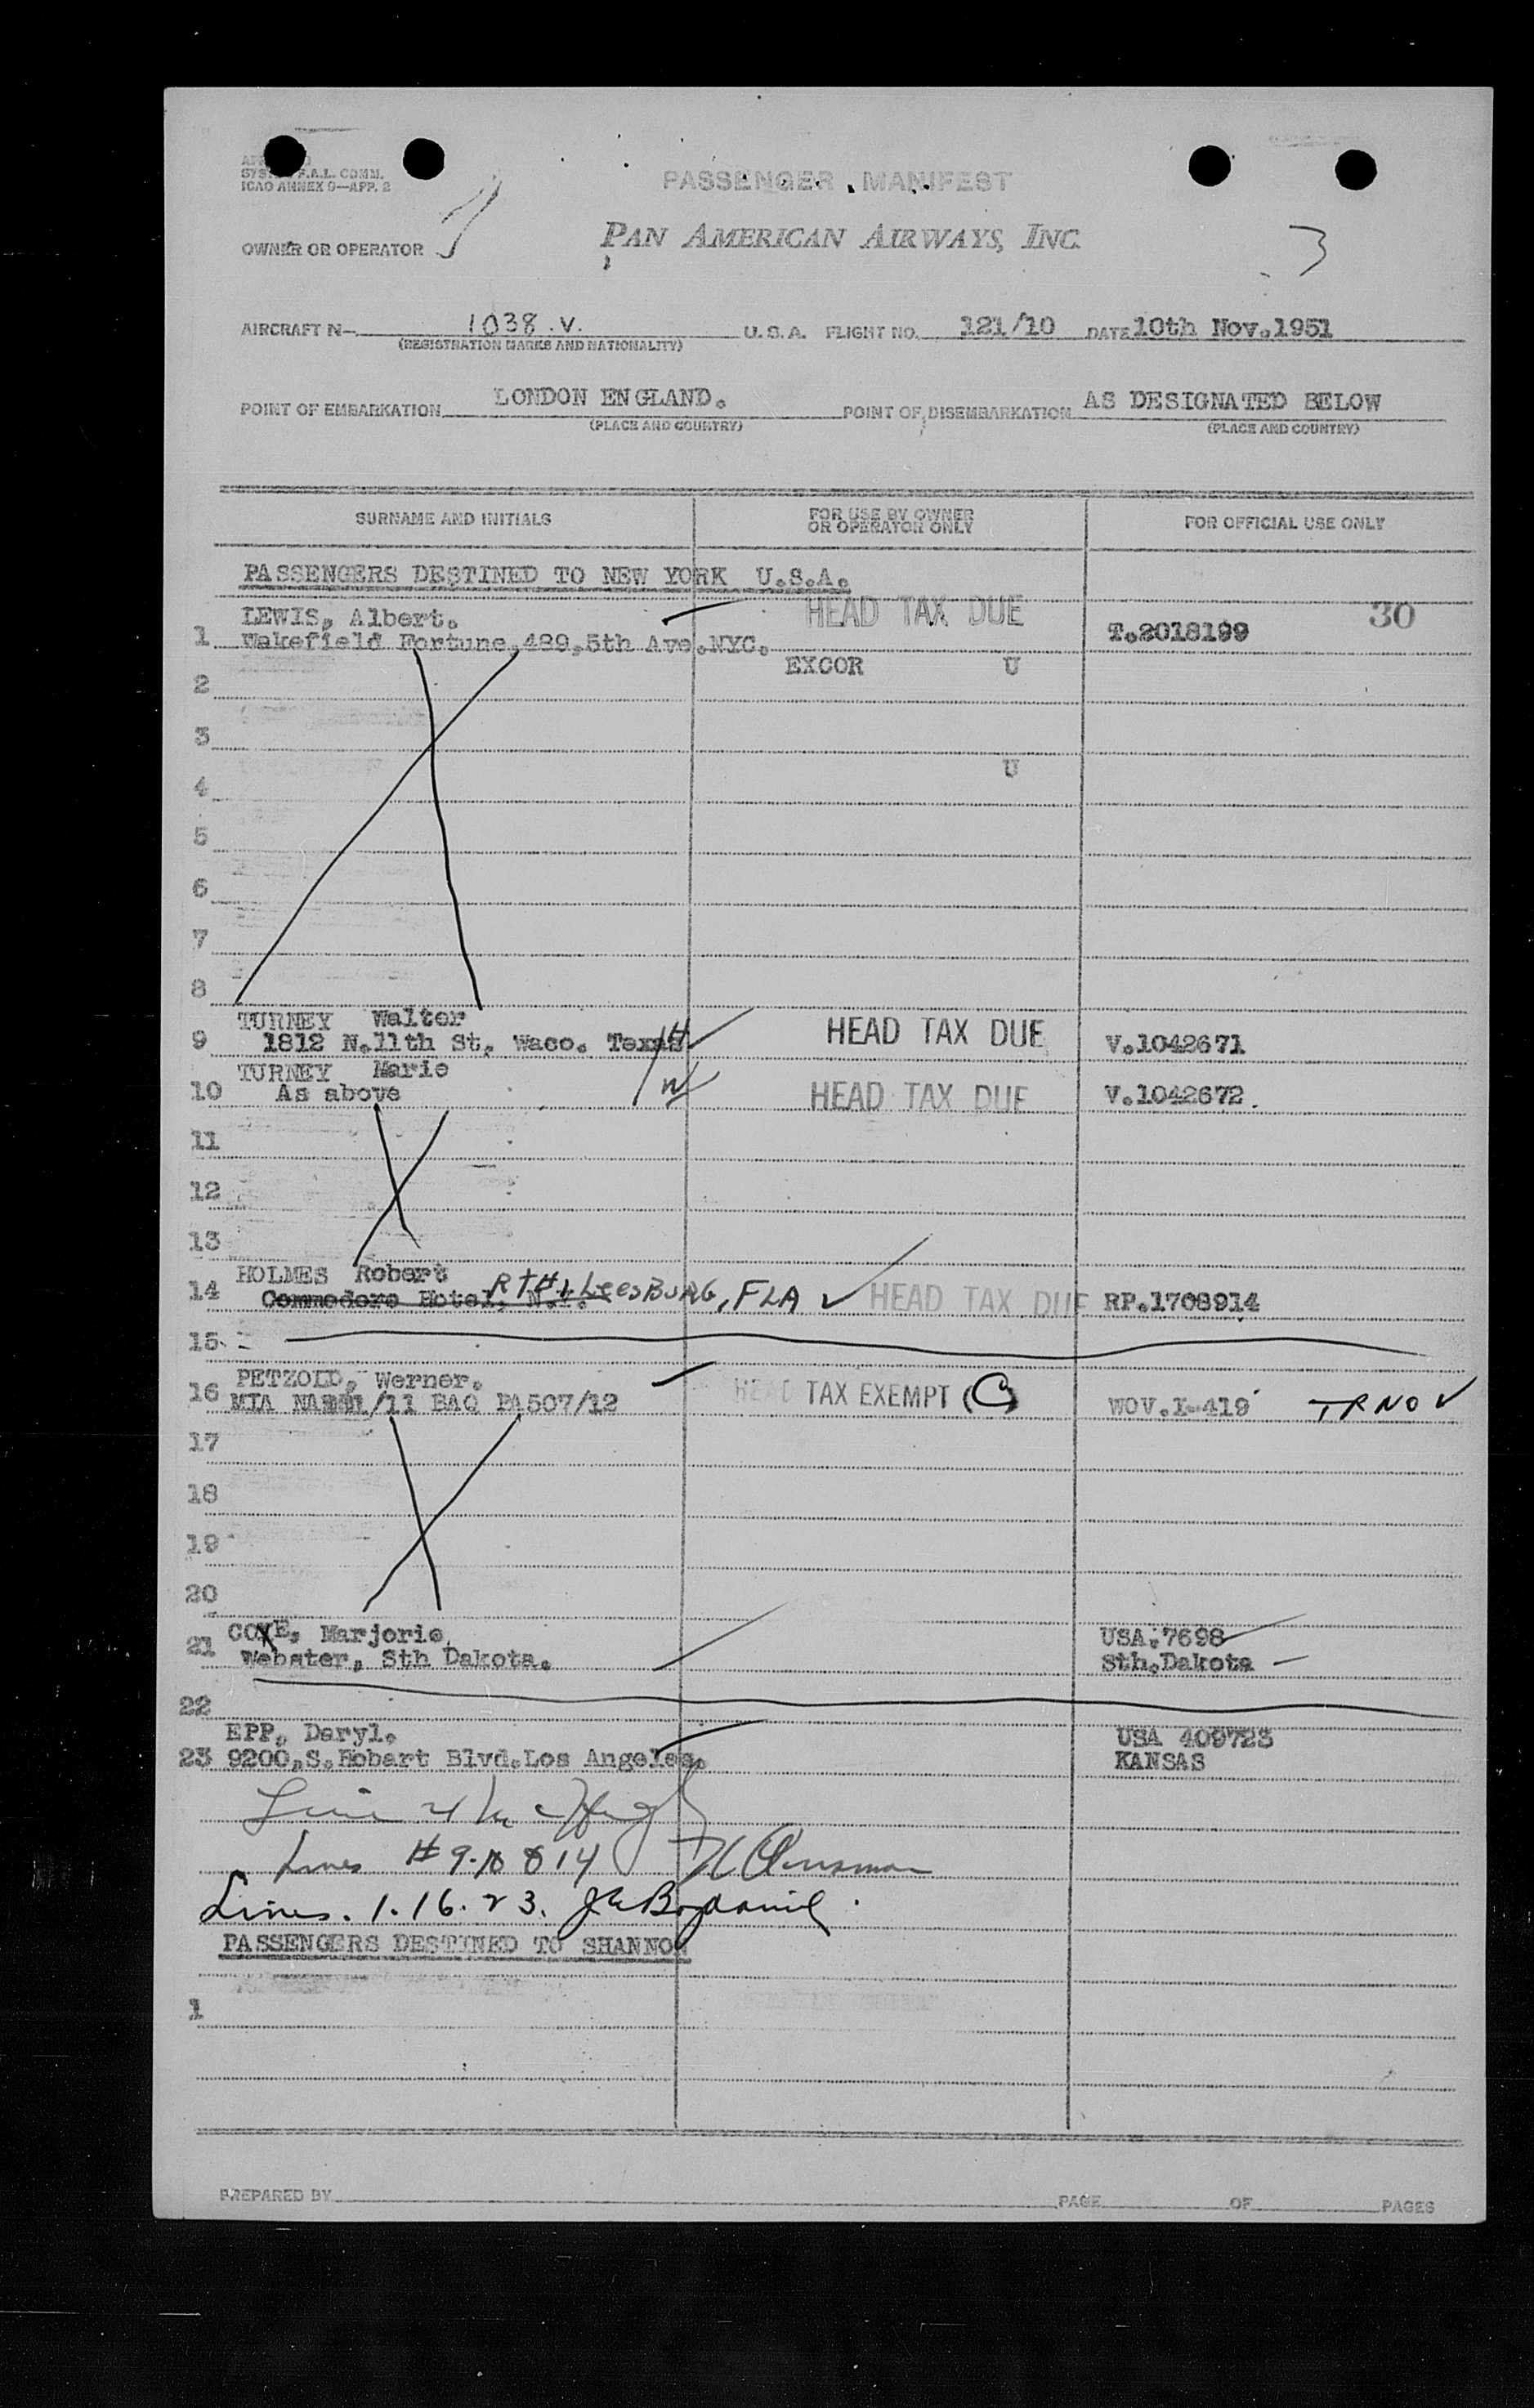 SYS F.A.L. COMM.
ICAO ANNEX 9—APP. 2
PASSENGER MANIFEST
OWNER OR OPERATOR
PAN AMERICAN AIRWAYS, INC.
3
AIRCRAFT N— 1038.V. U.S.A. FLIGHT NO. 121/10 DATE 10th Nov.1951
(REGISTRATION MARKS AND NATIONALITY)
POINT OF EMBARKATION LONDON ENGLAND. POINT OF DISEMBARKATION AS DESIGNATED BELOW
(PLACE AND COUNTRY) (PLACE AND COUNTRY)
SURNAME AND INITIALS FOR USE BY OWNER OR OPERATOR ONLY FOR OFFICIAL USE ONLY
PASSENGERS DESTINED TO NEW YORK U.S.A.
LEWIS, Albert. HEAD TAX DUE 30
1 Wakefield Fortune,489,5th Ave.NYC. T.2018199
EXCOR U
2
3
U
4
5
6
7
8
TURNEY Walter
9 1812 N.11th St, Waco. Texas HEAD TAX DUE V.1042671
TURNEY Marie
10 As above W HEAD TAX DUE V.1042672.
11
12
13
HOLMES Robert
14 Commodore Hotel, N.Y. RT#1 LeesBURG, FLA HEAD TAX DUE RP.1708914
15
PETZOLD, Werner.
16 MIA 1/11 BAQ PA507/12 HEAD TAX EXEMPT (C) WOV.I-419 TRNO
17
18
19
20
COYE, Marjorie. USA.7698
21 Webster, Sth Dakota. Sth.Dakota
22
EPP, Daryl. USA 409723
23 9200,S.Hobart Blvd.Los Angeles. KANSAS
Lines #9-10 & 14
Lines. 1.16.23.
PASSENGERS DESTINED TO SHANNON
1
PREPARED BY PAGE OF PAGES